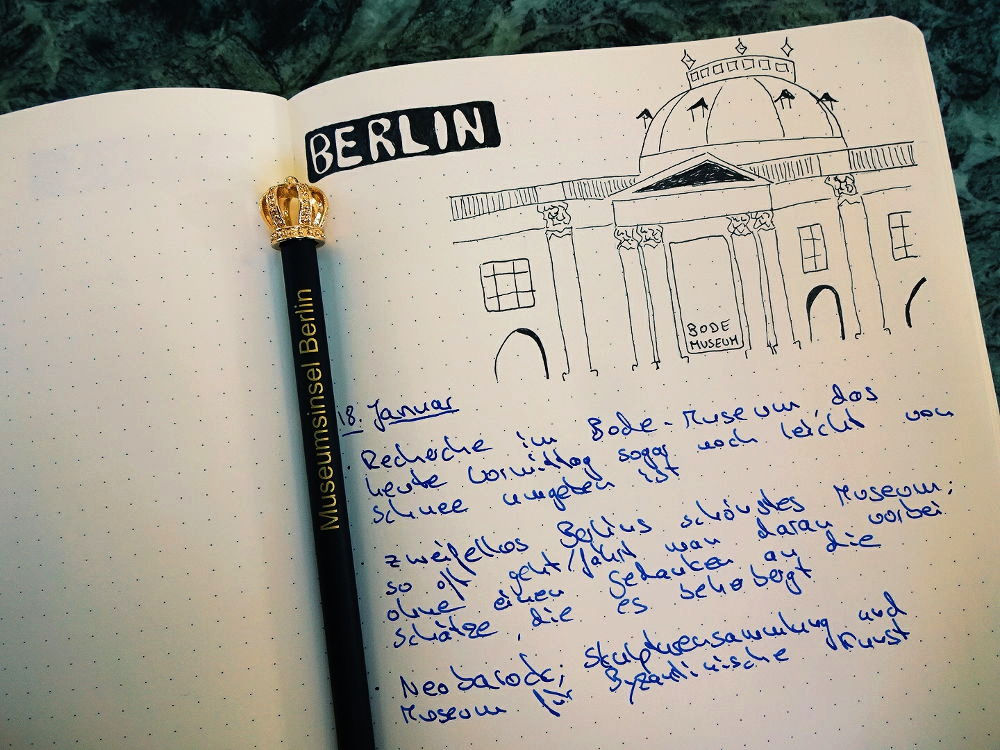 BERLIN
BODE
MUSEUM
Museumsinsel Berlin
18. Januar
Recherche im Bode-Museum, das
heute Vormittag sogar noch leicht von
Schnee umgeben ist
zweifellos Berlins schönstes Museum;
so oft geht/fährt man daran vorbei
ohne einen Gedanken an die
Schätze, die es beherbergt
Neobarock; Skulpturensammlung und
Museum für Byzantinische Kunst